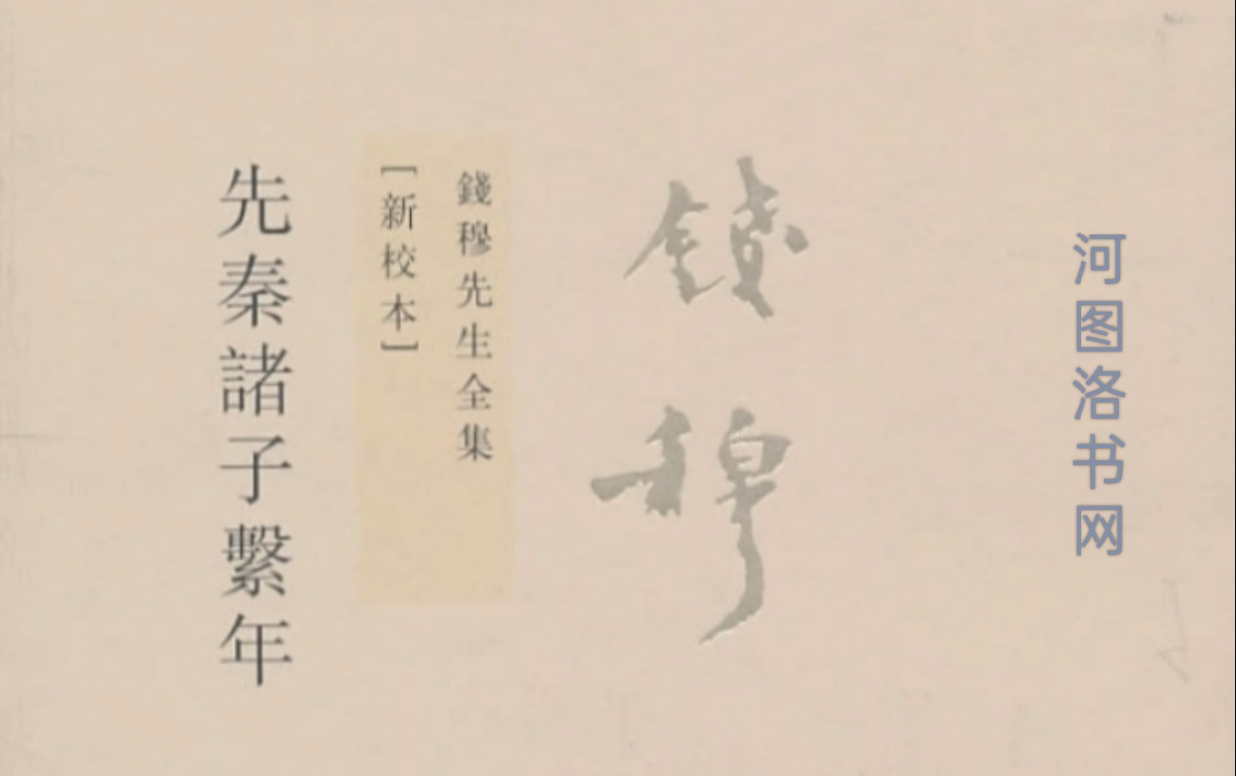 河图洛书网
錢穆
錢穆先生全集
[新校本]
先秦諸子繫年